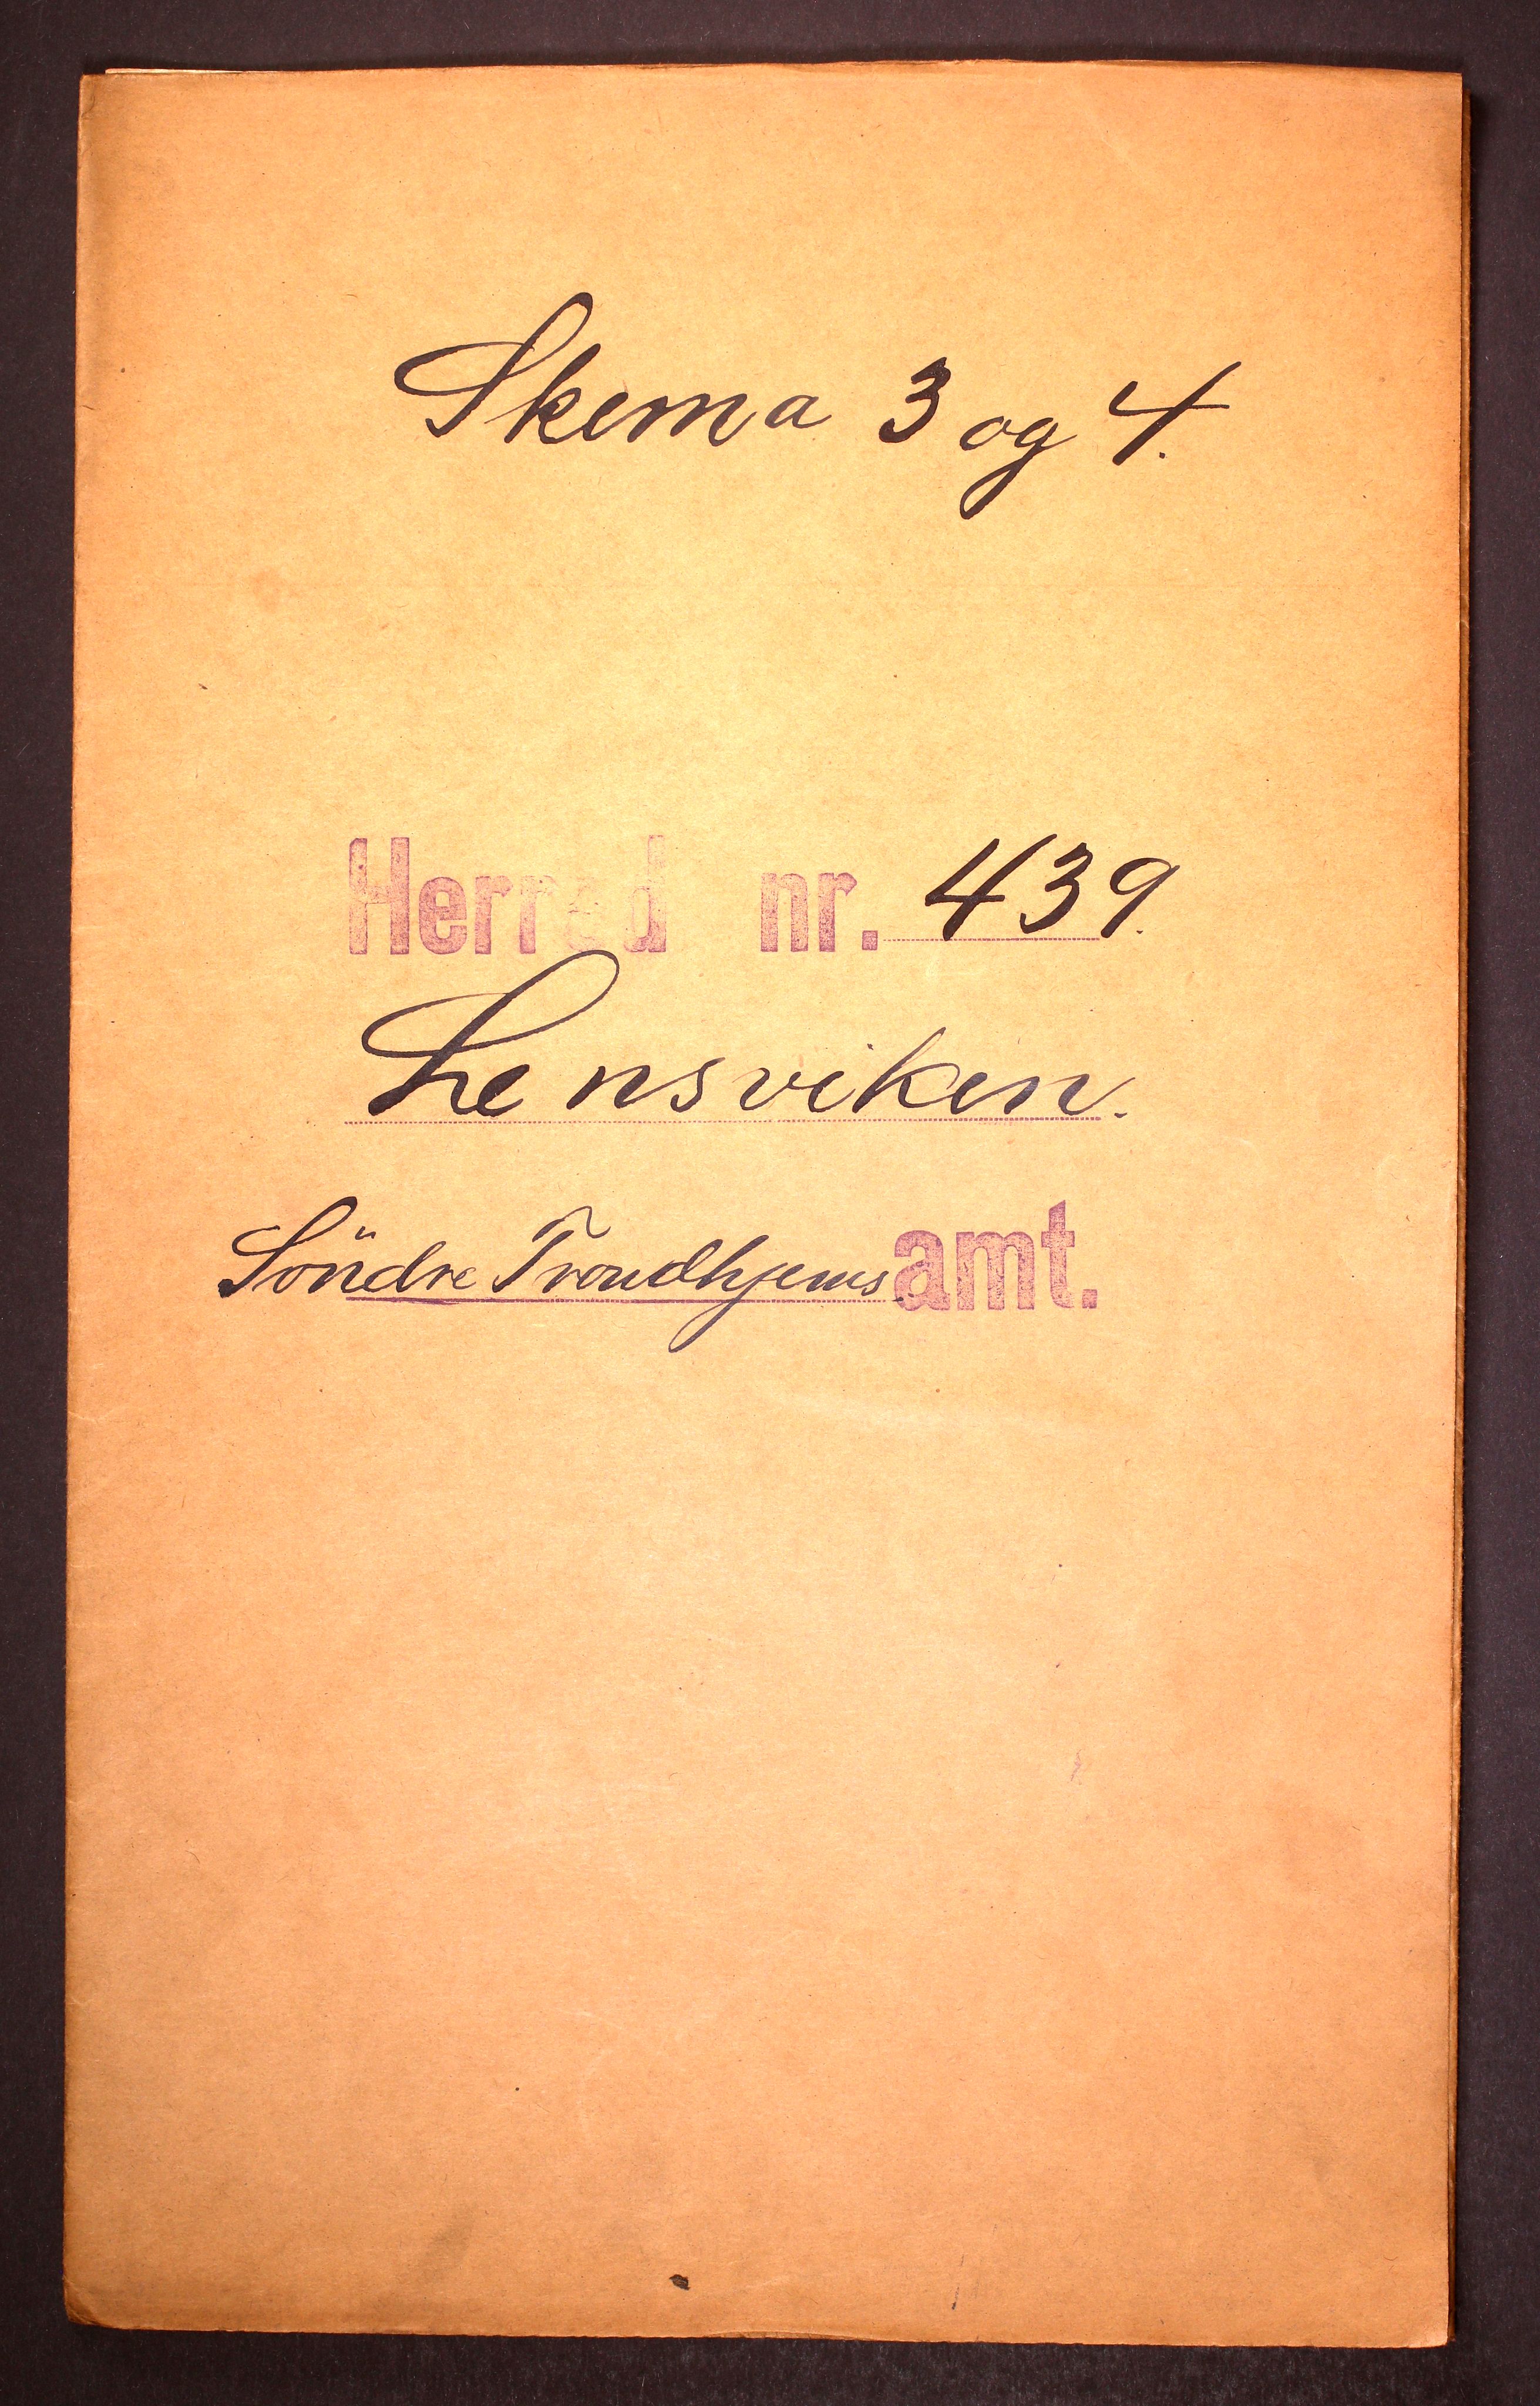 Skema 3 og 4.
Herred nr. 439.
Lensviken.
Söndre Trondhjems amt.